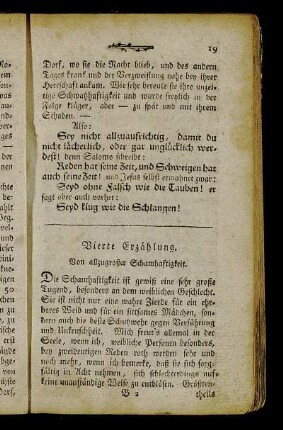 19
Dorf, wo sie die Nacht blieb, und des andern
Tages krank und der Verzweiflung nahe bey ihrer
Herrschaft ankam. Wie sehr bereute sie ihre vorei-
tige Schwatzhaftigkeit und wurde freylich in der
Folge klüger, aber — zu spät und mit ihrem
Schaden. —
Also:
Sey nicht allzuaufrichtig, damit du
nicht lächerlich, oder gar unglücklich werd-
dest! denn Salomo schreibt:
Reden hat seine Zeit, und Schweigen hat
auch seine Zeit! und Jesus selbst ermahnet zwar:
Seyd ohne Falsch wie die Tauben! er
sagt aber auch vorher:
Seyd klug wie die Schlangen!
Vierte Erzählung.
Von allzugroßer Schamhaftigkeit.
Die Schamhaftigkeit ist gewiß eine sehr große
Tugend, besonders an dem weiblichen Geschlecht.
Sie ist nicht nur eine wahre Zierde für ein ehr-
bares Weib und für ein sittsames Mädchen, son-
dern auch die beste Schutzwehr gegen Verführung
und Unkeuschheit. Mich freut's allemal in der
Seele, wenn ich, weibliche Personen besonders,
bey zweideutigen Reden roth werden sehe und
noch mehr, wenn ich bemerke, daß sie sich sorg-
fältig in Acht nehmen, sich schlechterdings auf
keine unanständige Weise zu entblößen. Größten-
B 2 theils